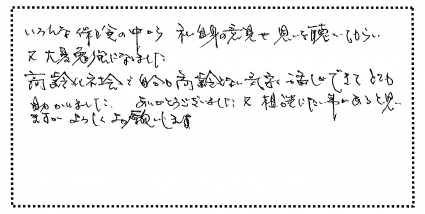 いろんな保険の中から 私自身の意見や思いを聴いてもらい
又大変勉強になりました
高齢化社会で自分も高齢となり気安く話しができてとても
助かりました。ありがとうございました 又相談したい事があると思い
ますがよろしくお願いします